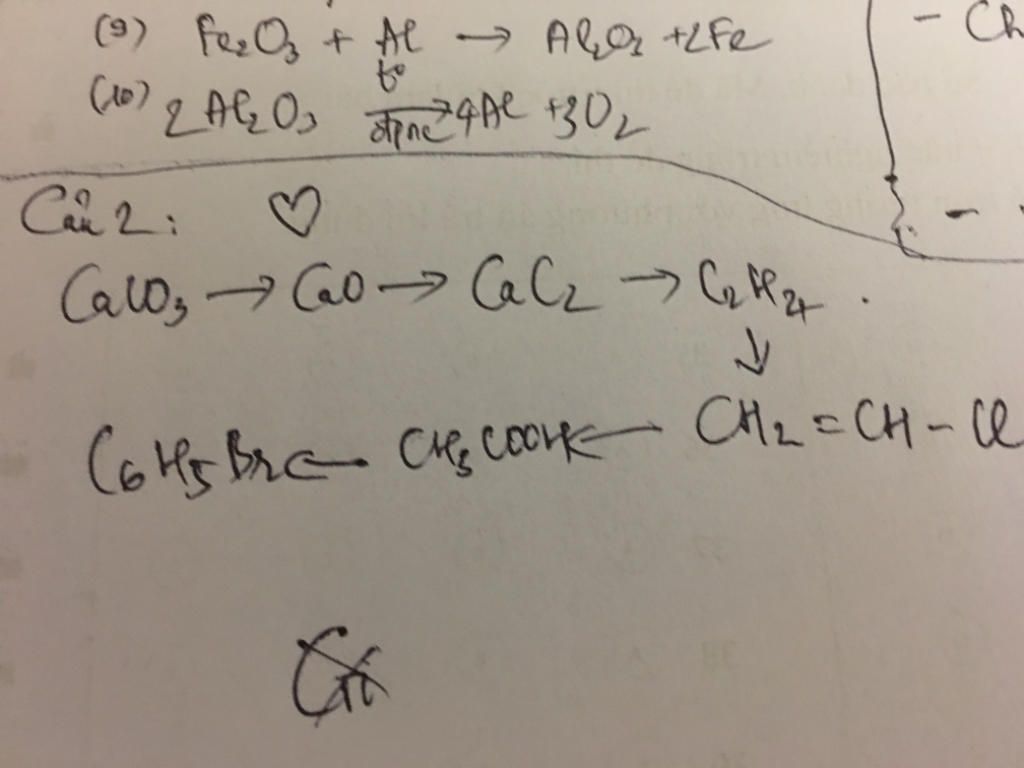 (9) Fe₂O₃ + Al → Al₂O₂ + 2Fe
t°
(10) 2Al₂O₃ → 4Al + 3O₂
đpnc
- Ch
Câu 2: ♡
CaCO₃ → CaO → CaC₂ → C₂H₂
↓
C₆H₅Br ← CH₃COOH ← CH₂ = CH - Cl